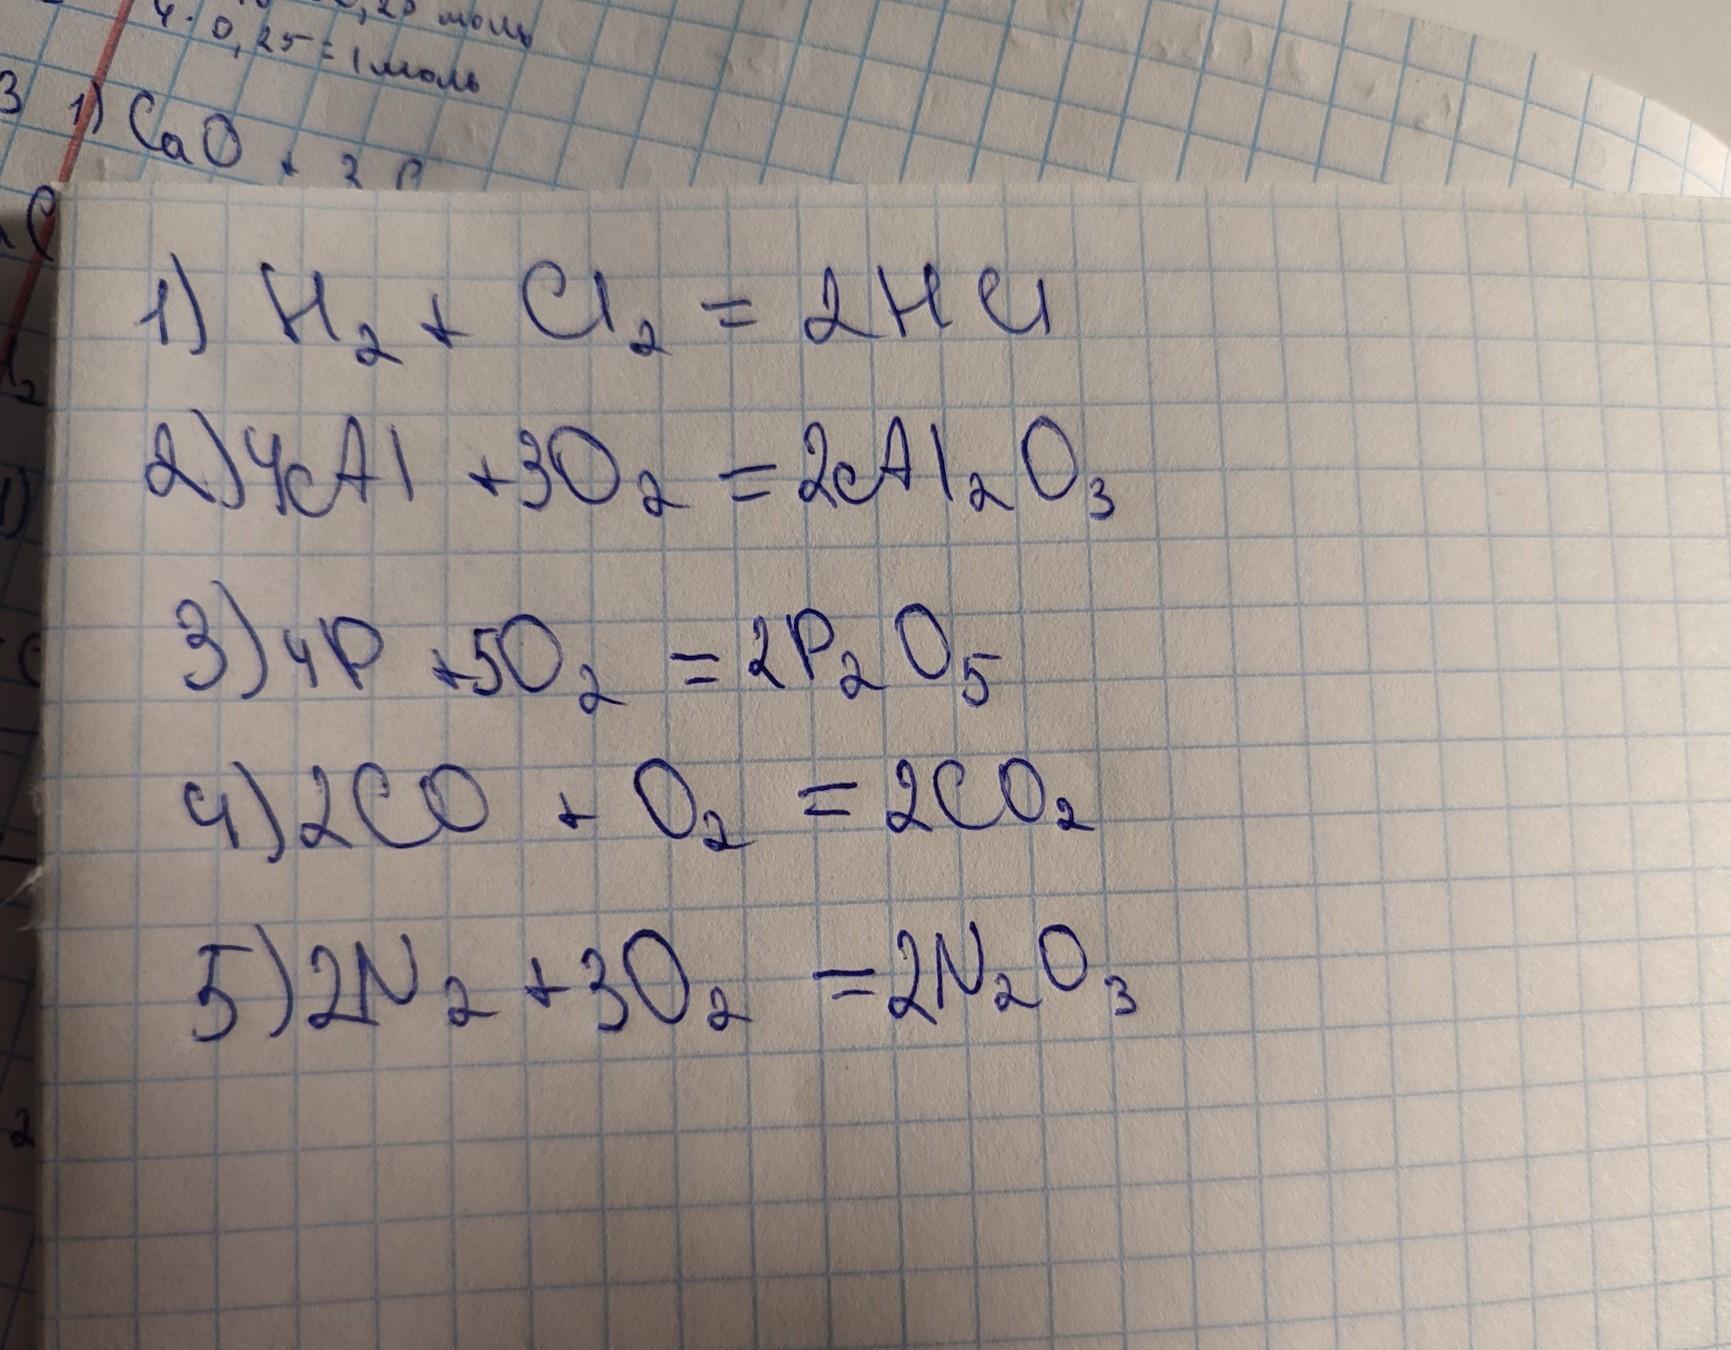 0,25 моль
4 · 0,25 = 1 моль
3 1) CaO + 3
1) H₂ + Cl₂ = 2HCl
2) 4Al + 3O₂ = 2Al₂O₃
3) 4P + 5O₂ = 2P₂O₅
4) 2CO + O₂ = 2CO₂
5) 2N₂ + 3O₂ = 2N₂O₃